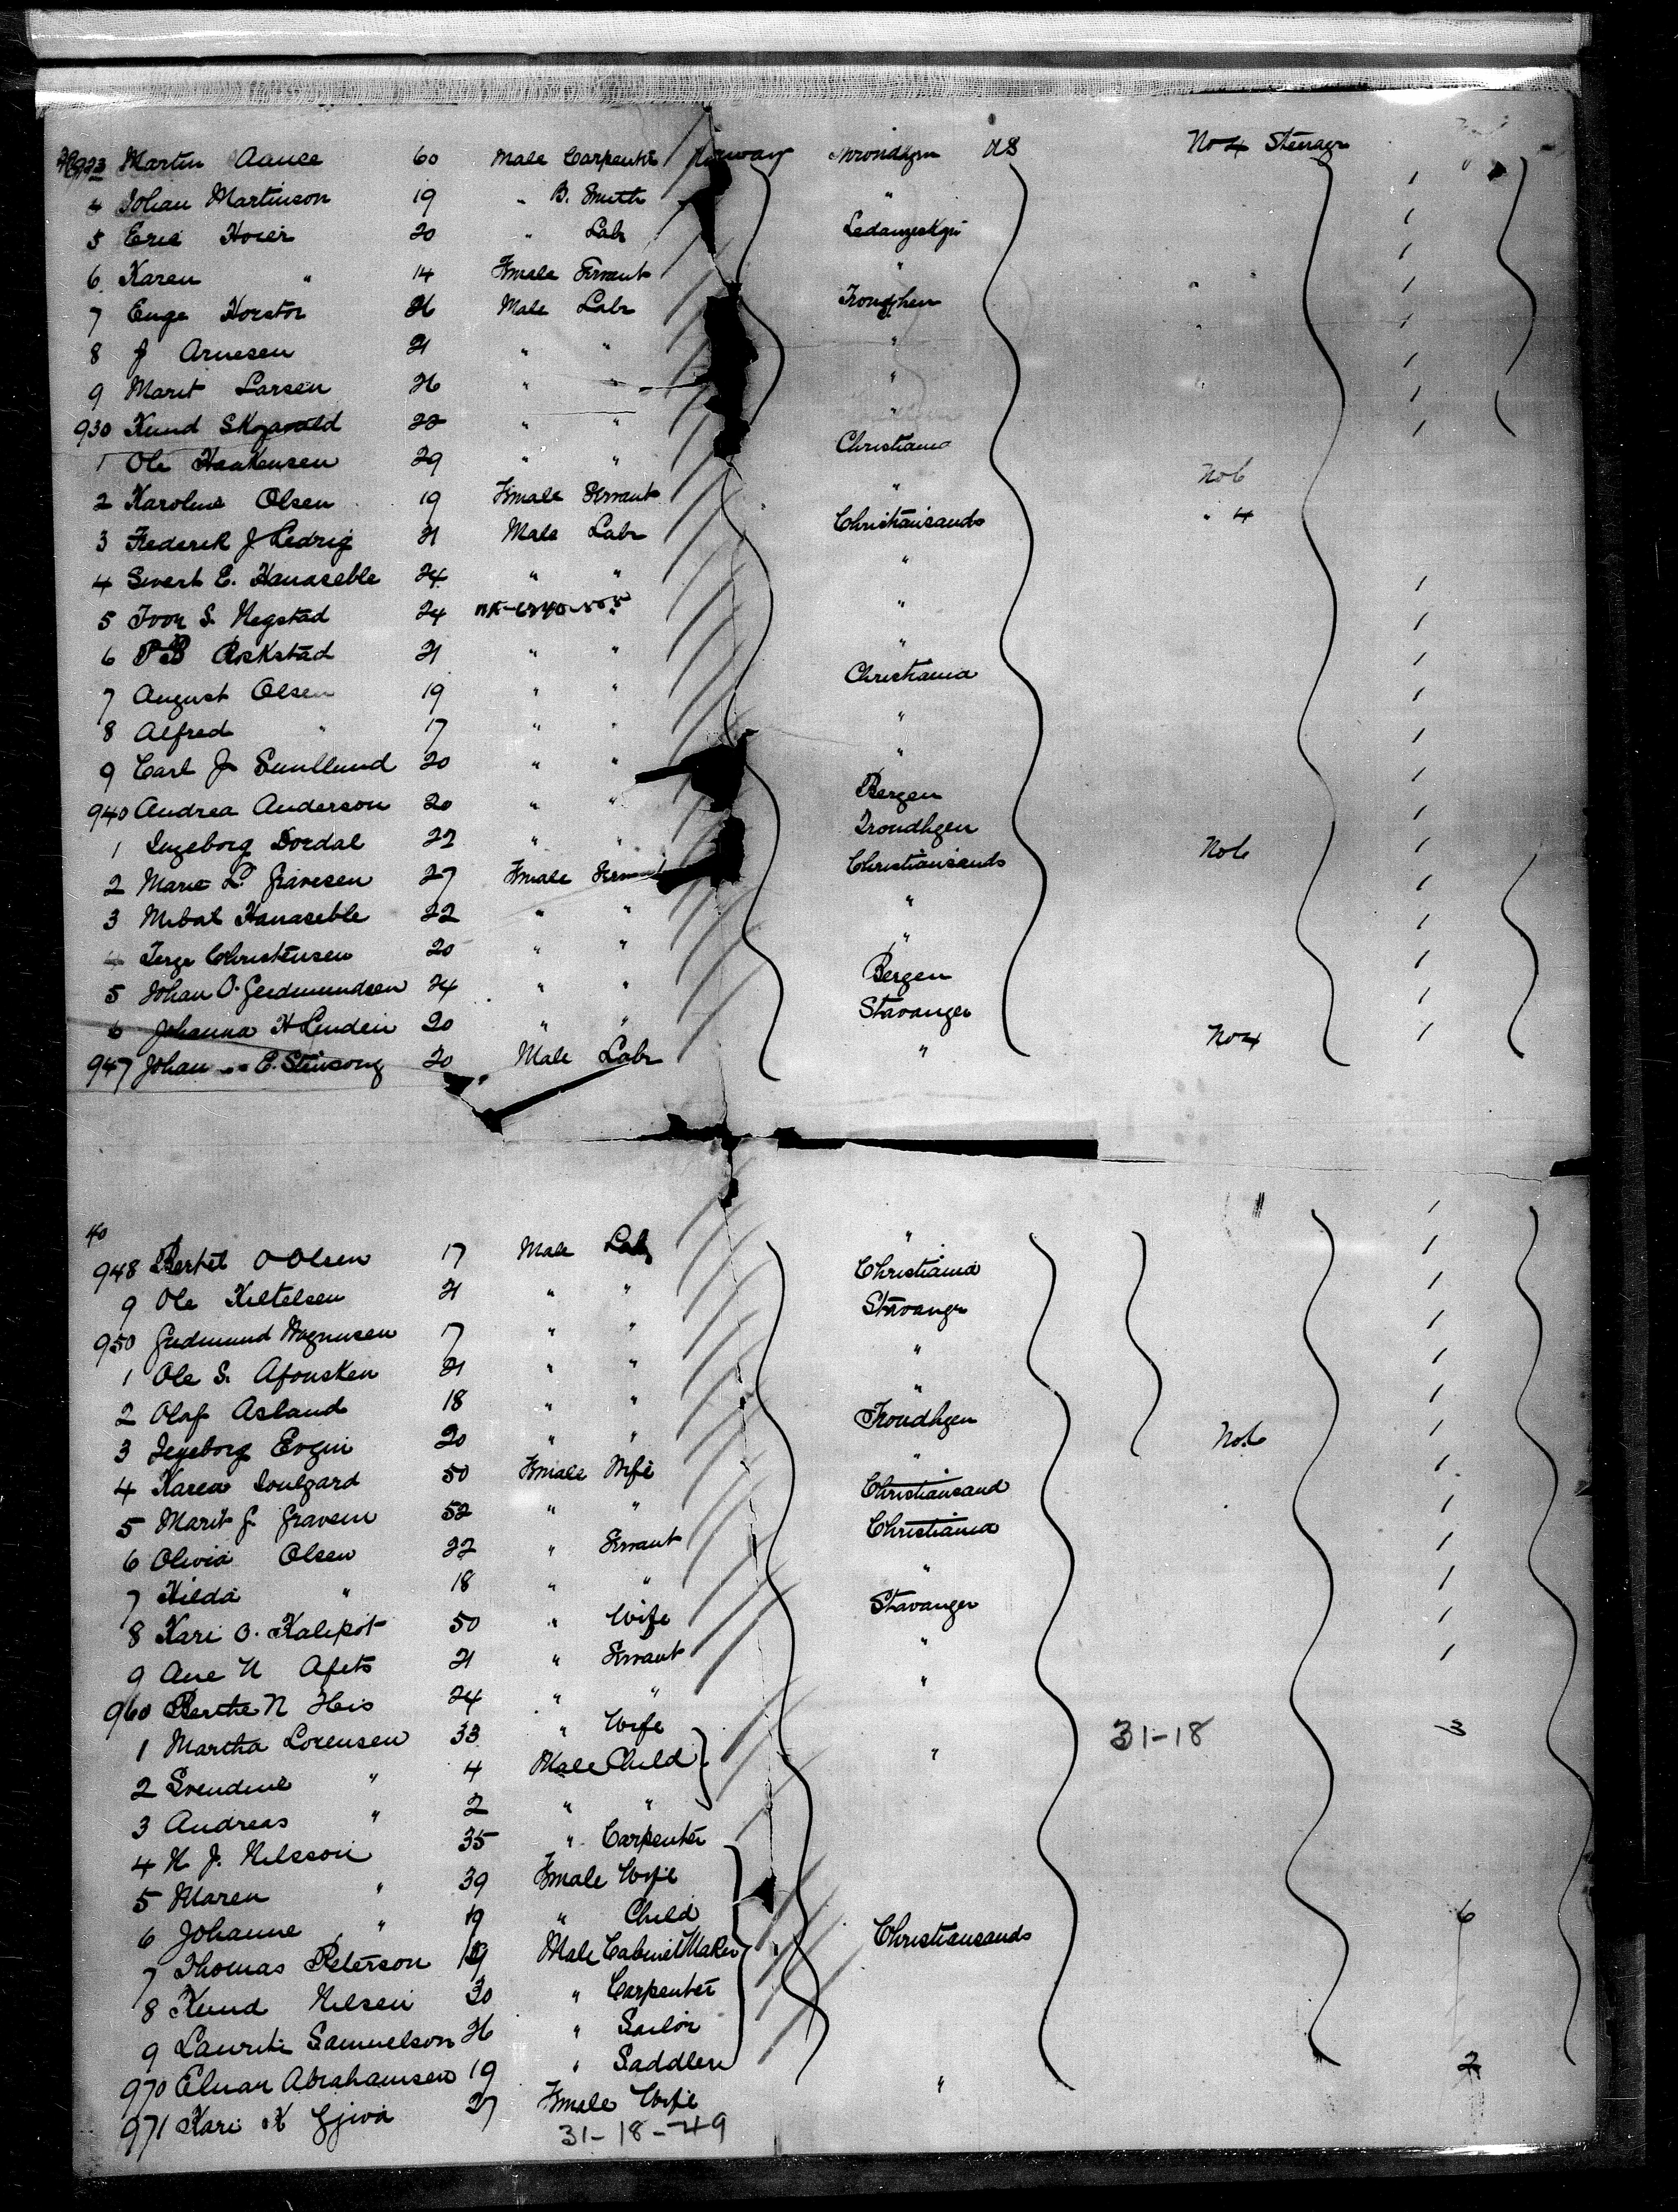 923 Martin Aanee 60 Male Carpenter Norway Trondhgm US No 4 Steerage
4 Johan Martinson 19 " B. Smith "
5 Eric Hoier 20 " Labr
6 Karen " 14 Female Servant "
7 Enge Horstor 26 Male Labr
8 J Arnesen 21 " " "
9 Marit Larsen 26 " " "
930 Knud 22 " " "
1 Ole Haakensen 29 " " Christiania
2 Karoline Olsen 19 Female Servant " No 6
3 Frederik J Ledrig 21 Male Labr Christiansands " 4
4 Sivert E. Hanaseble 24 " " "
5 Ivor S. Negstad 24 "
6 P B Rokstad 21 " " "
7 August Olsen 19 " " Christiania
8 Alfred " 17 " " "
9 Carl J Sunllund 20 " " "
940 Andrea Anderson 20 " " Bergen
1 Ingeborg Dordal 22 " " Trondhgen
2 Marie L. Gravesen 27 Female Servant Christiansands No 6
3 Hanaseble 22 " " "
4 Terge Christensen 20 " " "
5 Johan O. Gudmundsen 24 " " Bergen
6 Johanna H Lunden 20 " " Stavanger
947 Johan E. Stensong 20 Male Labr " No 4
40
948 Bertel O Olsen 17 Male Labr "
9 Ole Kiltelsen 21 " " Christiania
950 Gudmund Magnusen 17 " " Stavanger
1 Ole S. Afonsken 21 " " "
2 Olaf Asland 18 " " "
3 Ingeborg Evgin 20 " " Trondhgen No. 6
4 Karen 50 Female Wife "
5 Marit J. Gravem 52 " " Christiansand
6 Olivia Olsen 22 " Servant Christiania
7 Hilda " 18 " " "
8 Kari O. Kalipot 50 " Wife Stavanger
9 Ane N Afets 21 " Servant "
960 Berthe N Heis 24 " " "
1 Martha Lorensen 33 " Wife 31-18 3
2 Svendine " 4 Male Child "
3 Andreas " 2 " "
4 N. J. Nilsson 35 " Carpenter
5 Maren " 39 Female Wife
6 Johanne " 19 " Child 6
7 Thomas Peterson 19 Male Cabinet Maker Christiansands
8 Knud Nilsen 30 " Carpenter
9 Lauritz Samuelson 26 " Sailor
970 Elnar Abrahamsen 19 " Saddlere 2
971 Kari K Gjiva 27 Female Wife "
31-18-49